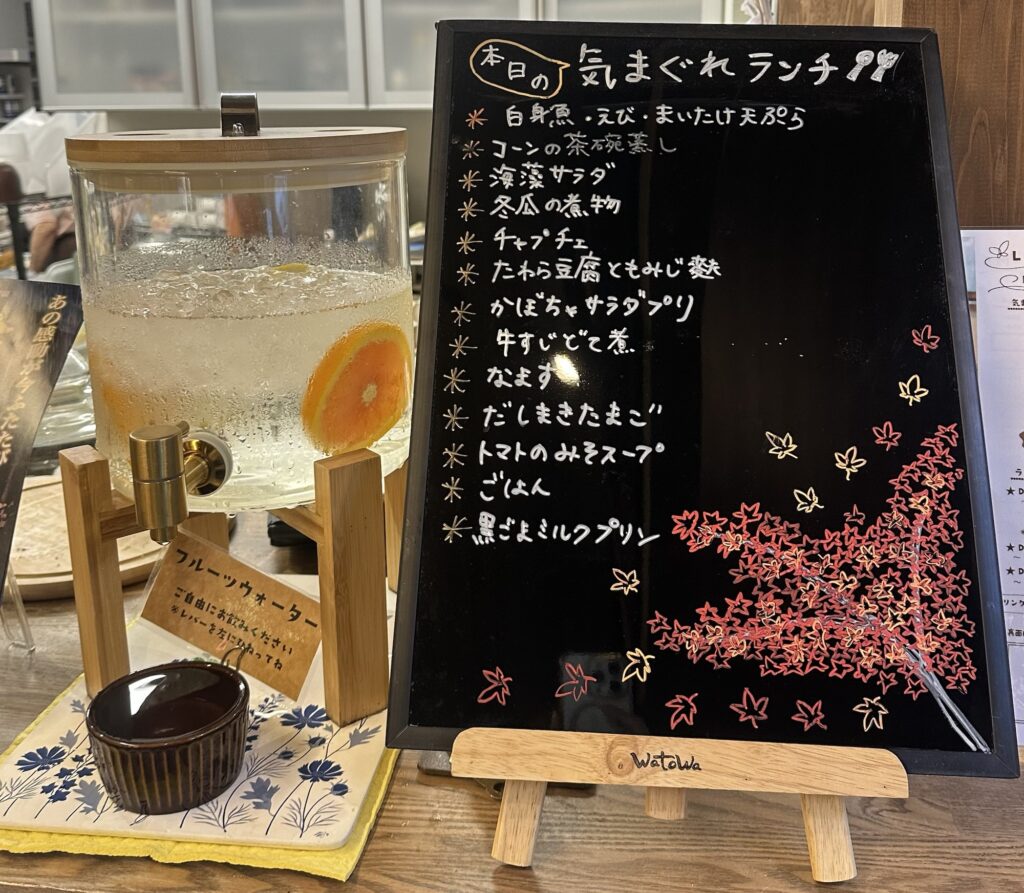 本日の 気まぐれランチ
* 白身魚・えび・まいたけ天ぷら
* コーンの茶碗蒸し
* 海藻サラダ
* 冬瓜の煮物
* チャプチェ
* たわら豆腐ともみじ麩
* かぼちゃサラダプリ
* 牛すじどて煮
* なます
* だしまきたまご
* トマトのみそスープ
* ごはん
* 黒ごまミルクプリン
watowa
フルーツウォーター
ご自由にお飲みください
※レバーを左にひねってね
あの感動が今ふたたび